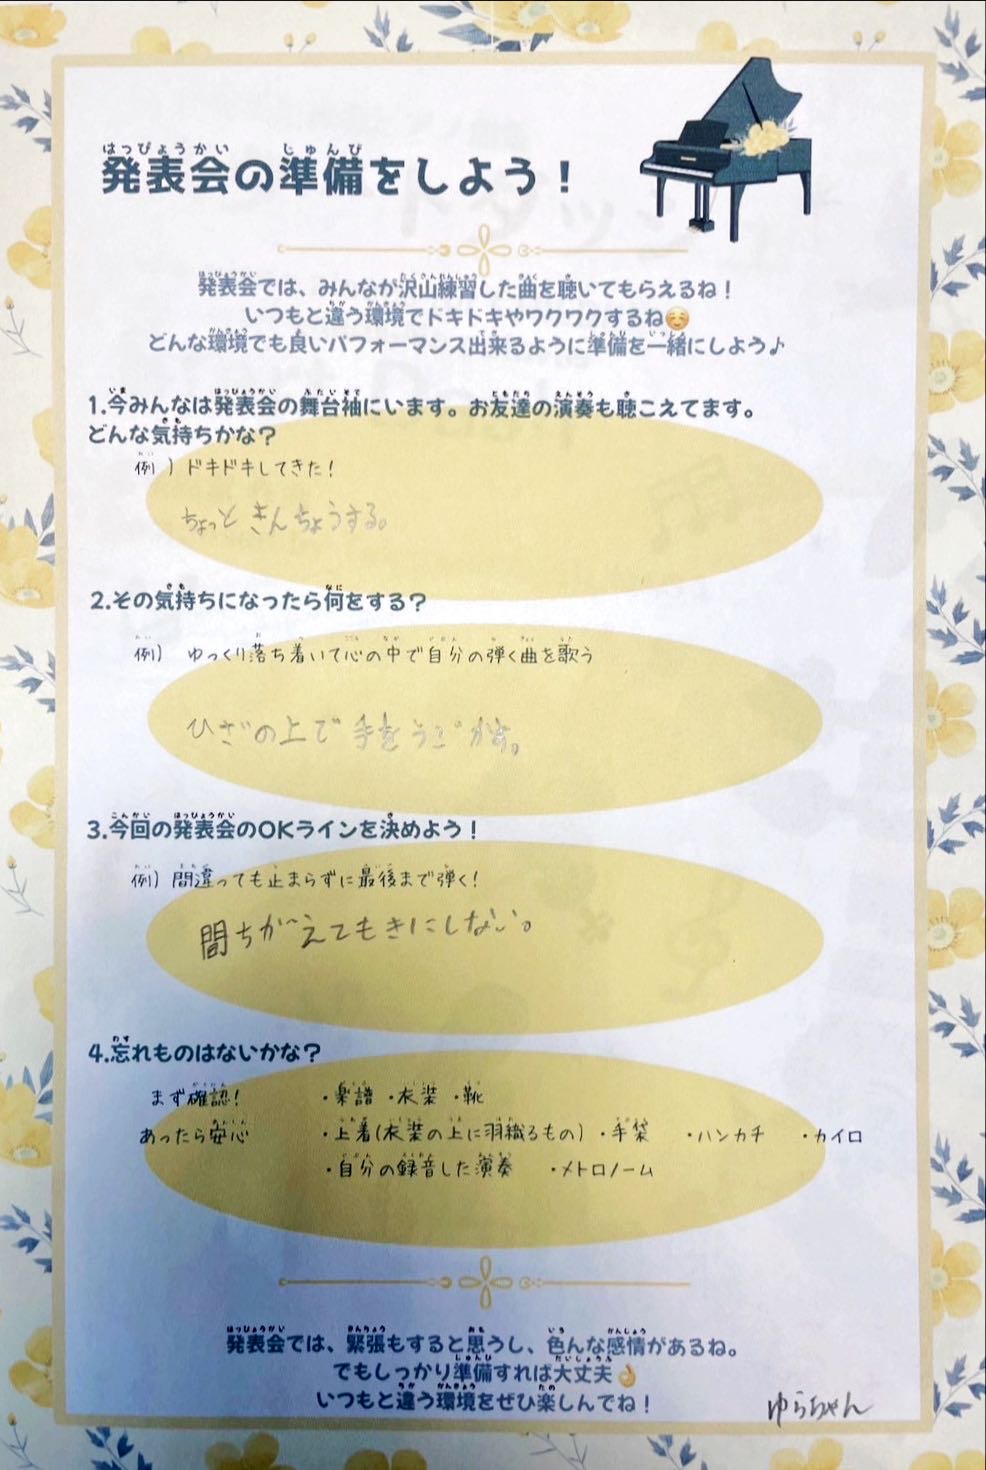 発表会の準備をしよう！
発表会では、みんなが沢山練習した曲を聴いてもらえるね！
いつもと違う環境でドキドキやワクワクするね☺️
どんな環境でも良いパフォーマンス出来るように準備を一緒にしよう♪
1.今みんなは発表会の舞台袖にいます。お友達の演奏も聴こえてます。
どんな気持ちかな？
例）ドキドキしてきた！
ちょっときんちょうする。
2.その気持ちになったら何をする？
例）ゆっくり落ち着いて心の中で自分の弾く曲を歌う
ひざの上で手をうごかす。
3.今回の発表会のOKラインを決めよう！
例）間違っても止まらずに最後まで弾く！
間ちがえてもきにしない。
4.忘れものはないかな？
まず確認！ ・楽譜 ・衣装 ・靴
あったら安心 ・上着(衣装の上に羽織るもの) ・手袋 ・ハンカチ ・カイロ
・自分の録音した演奏 ・メトロノーム
発表会では、緊張もすると思うし、色んな感情があるね。
でもしっかり準備すれば大丈夫👌
いつもと違う環境をぜひ楽しんでね！
ゆらちゃん